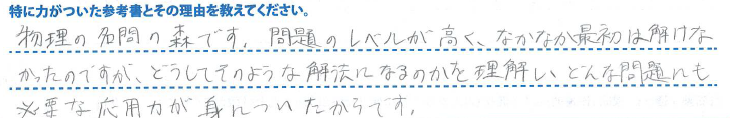 特に力がついた参考書とその理由を教えてください。
物理の名問の森です。問題のレベルが高く、なかなか最初は解けな
かったのですが、どうしてそのような解法になるのかを理解し、どんな問題にも
必要な応用力が身についたからです。